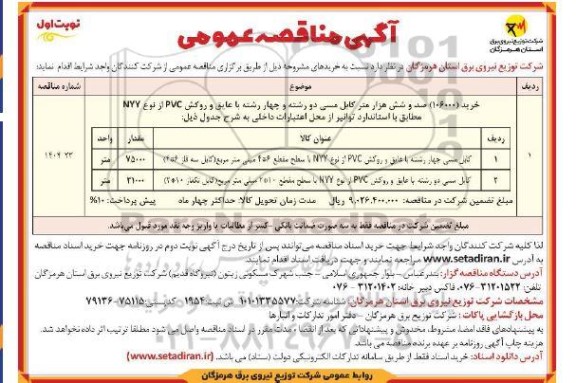 نوبت اول
آگهی مناقصه عمومی
شرکت توزیع نیروی برق
استان هرمزگان
شرکت توزیع نیروی برق استان هرمزگان در نظر دارد نسبت به خریدهای مشروحه ذیل از طریق برگزاری مناقصه عمومی از شرکت کنندگان واجد شرایط اقدام نماید:
ردیف موضوع شماره مناقصه
۱ خرید (۱۰۶۰۰۰) صد و شش هزار متر کابل مسی دو رشته و چهار رشته با عایق و روکش PVC از نوع NYY
مطابق با استاندارد توانیر از محل اعتبارات داخلی به شرح جدول ذیل:
ردیف عنوان کالا مقدار واحد
۱ کابل مسی چهار رشته با عایق و روکش PVC از نوع NYY با سطح مقطع ۶*۴ میلی متر مربع ۷۵۰۰۰ متر
۲ کابل مسی دو رشته با عایق و روکش PVC از نوع NYY با سطح مقطع ۱۰*۲ میلی متر مربع ۳۱۰۰۰ متر
مبلغ تضمین شرکت در مناقصه: ۹,۰۲۶,۴۰۰,۰۰۰ ریال مدت زمان تحویل کالا: حداکثر چهار ماه پیش پرداخت: ۱۰%
مبلغ تضمین شرکت در مناقصه فقط به سه صورت ضمانت بانکی - کسر از مطالبات یا واریز وجه نقد مورد قبول می‌باشد.
لذا کلیه شرکت کنندگان واجد شرایط جهت خرید اسناد مناقصه می‌توانند پس از تاریخ درج آگهی نوبت دوم در روزنامه جهت خرید اسناد مناقصه
به آدرس www.setadiran.ir مراجعه نمایند و جهت دریافت اسناد اقدام نمایند.
آدرس دستگاه مناقصه گزار: بندرعباس – بلوار جمهوری اسلامی – جنب شهرک مسکونی زیتون (نیروگاه قدیم) شرکت توزیع نیروی برق استان هرمزگان
تلفن: ۳۱۲۰۱۵۲۲-۰۷۶ فاکس دبیر خانه: ۳۱۲۰۱۴۰۲-۰۷۶
مشخصات شرکت توزیع نیروی برق استان هرمزگان: شناسه ثبت: ۱۰۱۰۱۳۳۵۵۷۷ ثبت: ۱۹۵۴ کدپستی: ۷۵۱۱۵-۷۹۱۳۶
محل بازگشایی پاکات: شرکت توزیع برق هرمزگان - دفتر امور تدارکات و انبارها
به پیشنهادهای فاقد امضا، مشروط، مخدوش و پیشنهاداتی که بعد از انقضا مدت مقرر در اسناد مناقصه واصل می شود مطلقا ترتیب اثر داده نخواهد شد.
هزینه چاپ آگهی روزنامه بر عهده برنده مناقصه می باشد.
آدرس دانلود اسناد: خرید اسناد فقط از طریق سامانه تدارکات الکترونیکی دولت (ستاد) می باشد. (www.setadiran.ir)
روابط عمومی شرکت توزیع نیروی برق هرمزگان